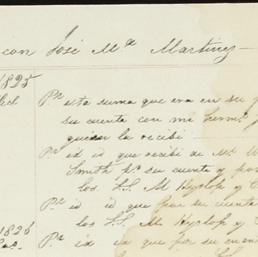 con José Ma Martinez
1825
Pr esta suma que era en su
su cuenta con mi herm.
quien la recibi
Pr id id que recibi de Mr W
Smith pr su cuenta y por
los SS M Hyslop y C
Pr id id que por su cuenta
los SS M. Hyslop y C
1826
Pr id id que por su cuen